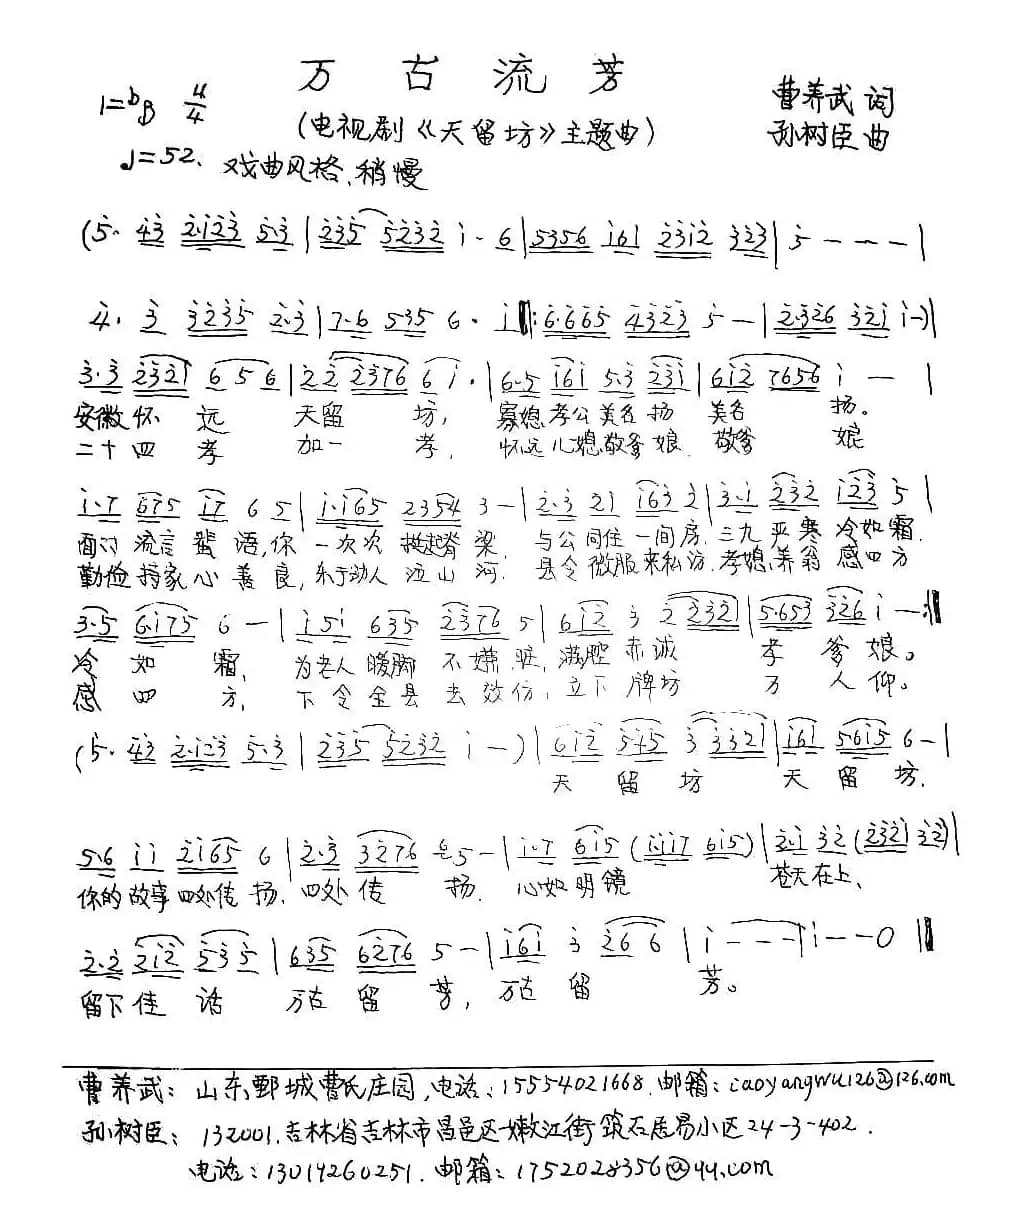 万古流芳
1=bB 4/4
(电视剧《天留坊》主题曲)
曹养武 词
孙树臣 曲
♩=52. 戏曲风格、稍慢
(5· 43 2·123 5·3 | 235 5232 i· 6 | 5356 i6i 23i2 323 | 5 - - - |
4· 3 3235 2·3 | 7·6 535 6· i ‖: 6·665 4323 5 - | 2·326 32i i-) |
3·3 232i 6 5 6 | 22 2376 6 i· | 6·5 i6i 5·3 23i | 6i2 7656 i - |
安徽怀 远 天留 坊, 寡媳孝公美名扬 美名 扬。
二十四孝 加一 孝, 怀远儿媳敬爹娘 敬爹 娘
i·7 675 i7 6 5 | i·i65 2354 3 - | 2·3 2i i63 2 | 3·i 232 i23 5 |
面对流言蜚语,你 一次次挺起脊梁, 与公同住一间房,三九严寒冷如霜,
勤俭持家心善良,乐于助人 山河. 县令微服来私访.孝媳养翁感四方
3·5 6·i75 6 - | i 5i 635 2376 5 | 6i2 3 2 232i | 5·653 326 i - :‖
冷如霜, 为老人暖脚不嫌脏,满腔赤诚 孝爹娘。
感四方, 下令全县去效仿,立下牌坊 万人仰。
(5· 43 2·i23 5·3 | 235 5232 i -) | 6i2 545 3 332i | i6i 56i5 6 - |
天留坊 天留坊.
5·6 ii 2i65 6 | 2·3 3276 65 - | i·7 6i5 (i·ii7 6i5) | 2·i 32 (232i 32) |
你的故事四处传扬.四处传 扬. 心如明镜 苍天在上、
2·2 2i2 535 | 635 6276 5 - | i6i 3 26 6 | i - - - | i - - 0 ‖
留下佳话 万古留芳, 万古留 芳。
曹养武: 山东鄄城曹氏庄园,电话:15554021668.邮箱:caoyangwu126@126.com
孙树臣: 132001.吉林省吉林市昌邑区嫩江街筑石居易小区24-3-402.
电话:13019260251.邮箱:1752028356@qq.com